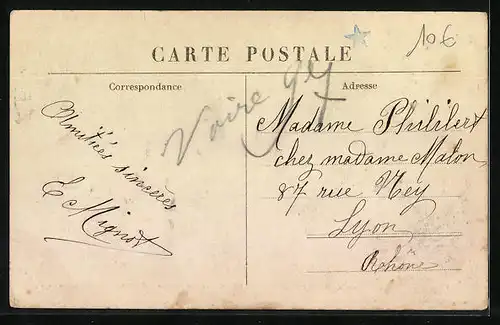 106
CARTE POSTALE
Correspondance
Adresse
Amitiés sincères
E. Mignot
Voire 97
Madame Philibert
chez madame Maton
87 rue Ney
Lyon
Rhône